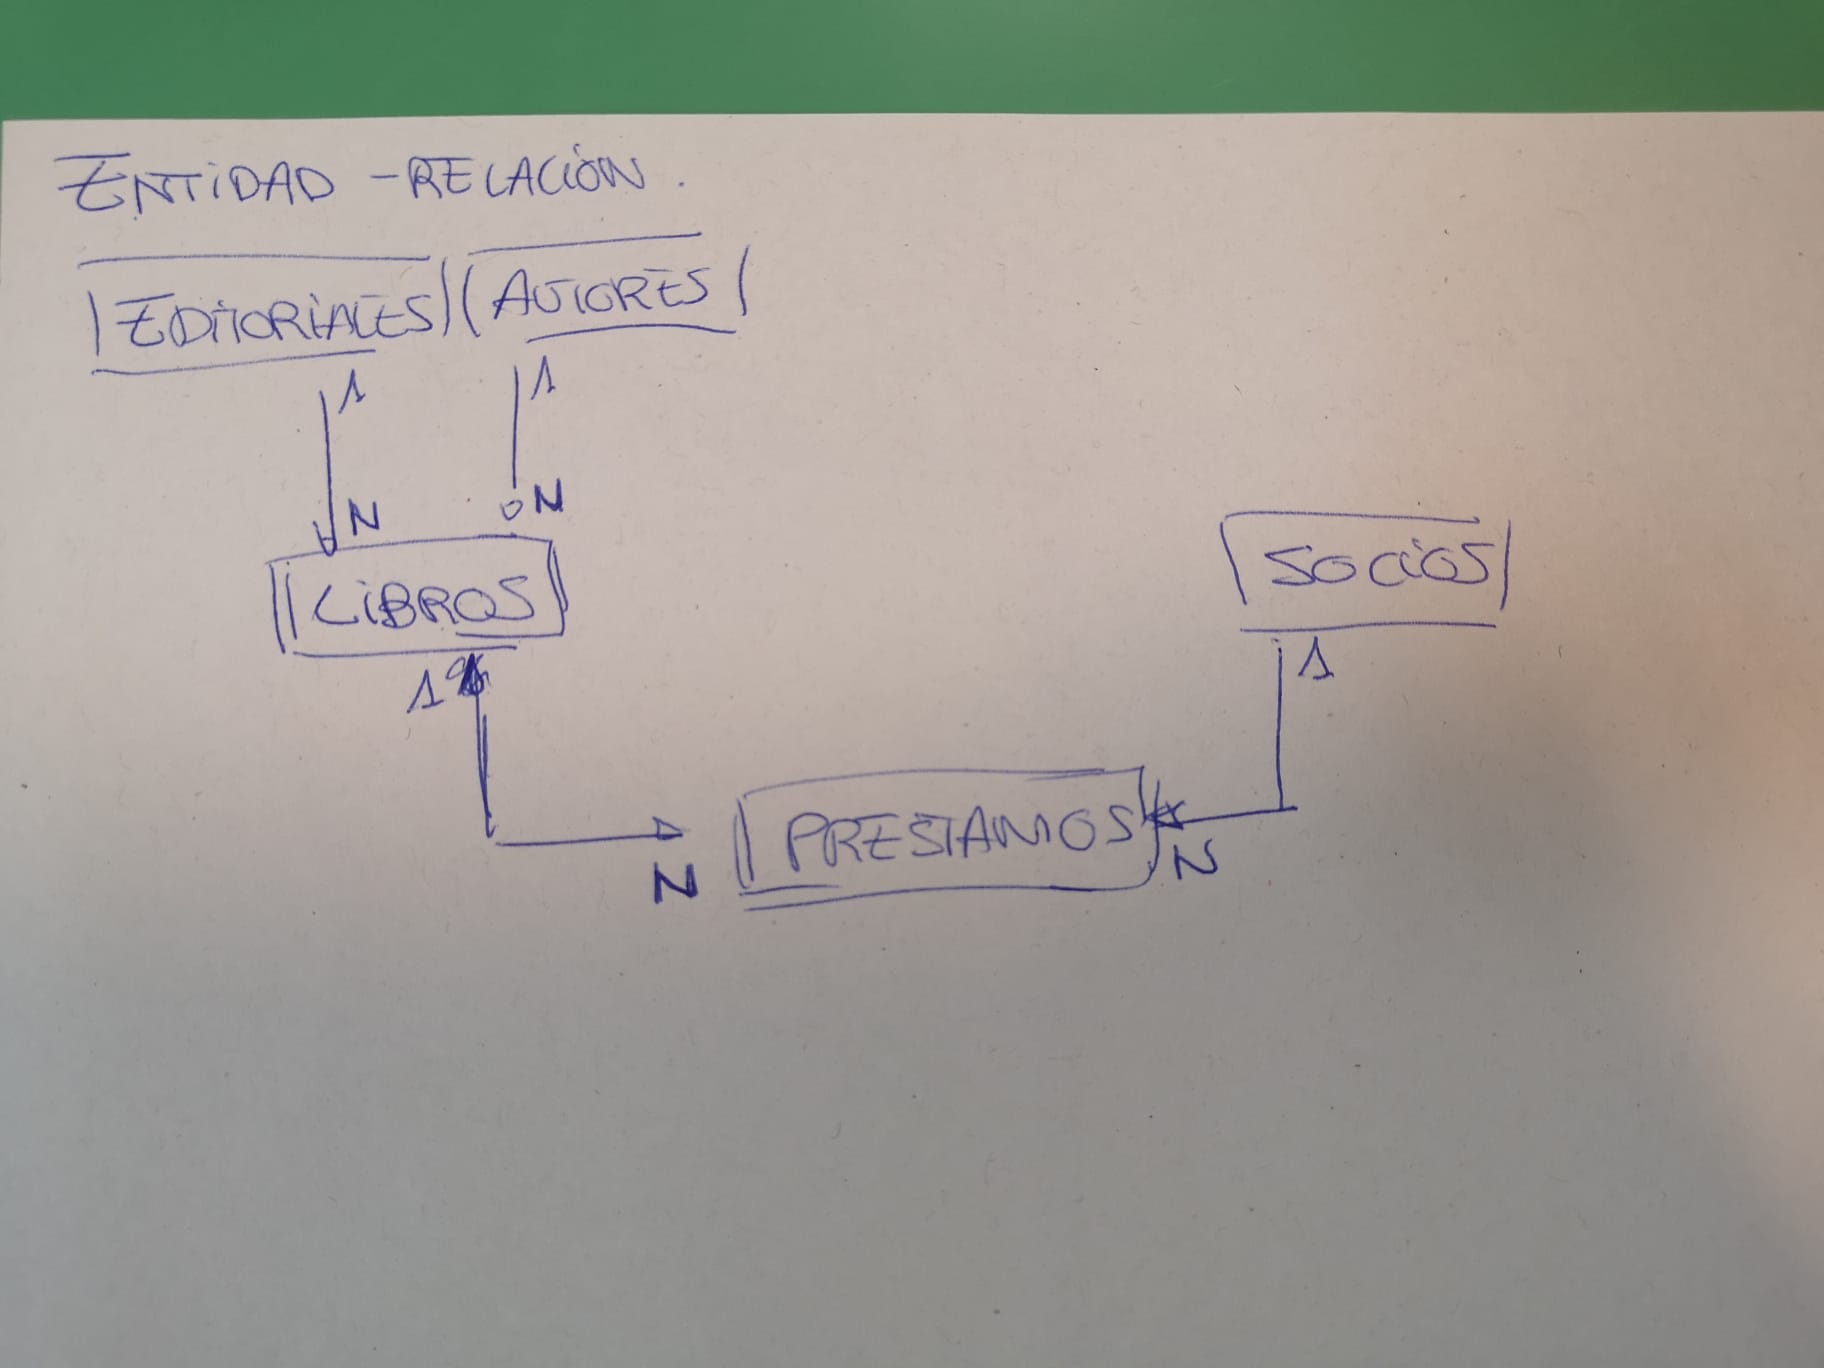 ENTIDAD - RELACIÓN.
EDITORIALES AUTORES
1 1
N N
LIBROS SOCIOS
1 1
PRESTAMOS
N N